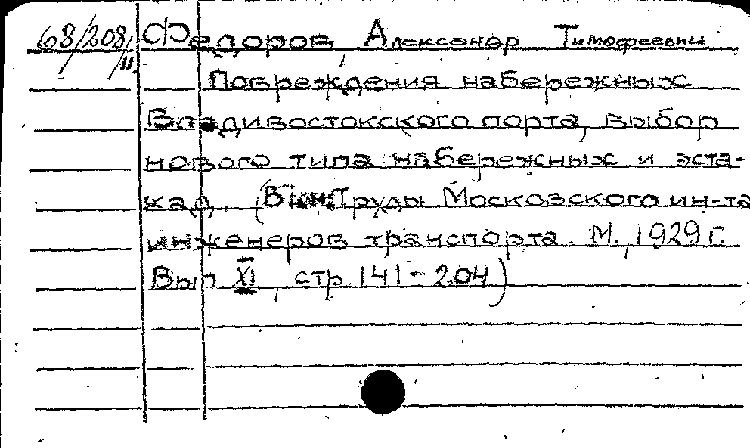 68/208/11 Федоров, Александр Тимофеевич
Повреждения набережных
Владивостокского порта, выбор
нового типа набережных и эста-
кад. (В Труды Московского ин-та
инженеров транспорта. М., 1929 г.
Вып XI, стр 141-204)